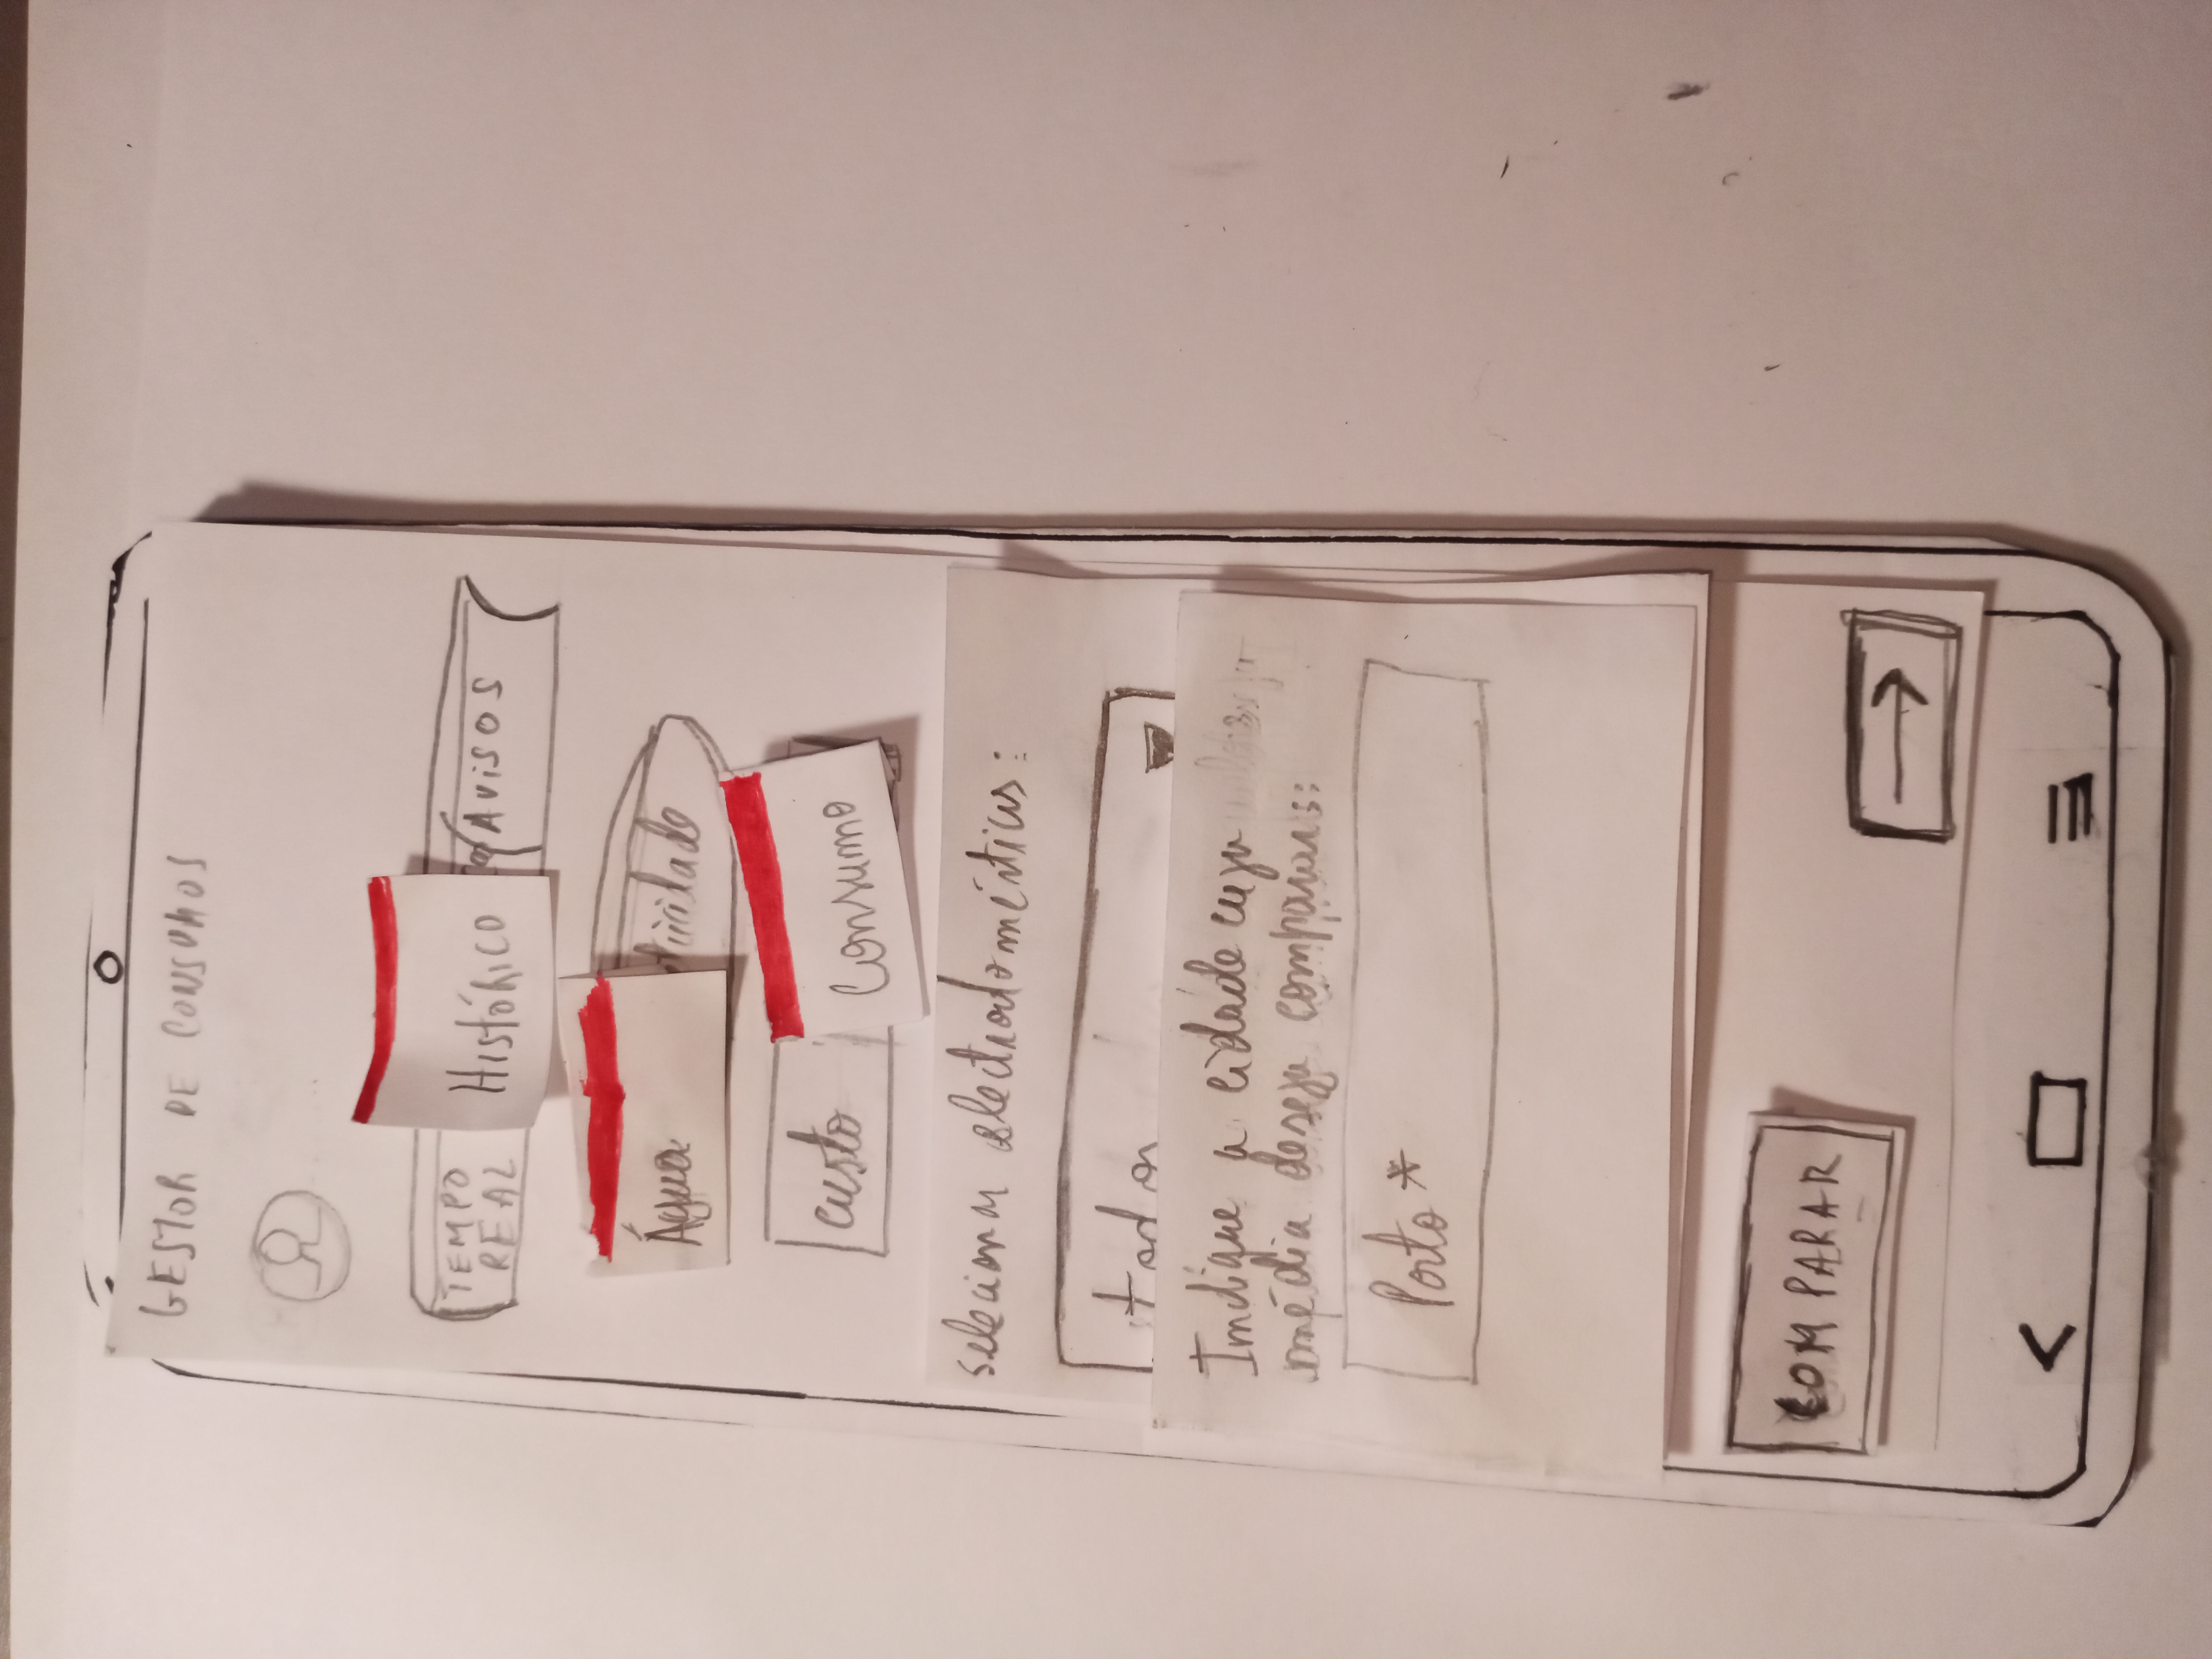 GESTOR DE CONSUMOS
TEMPO REAL
Histórico
AVISOS
Água
Custo
Consumo
electrodomésticos:
Indique a cidade cuja
média deseja comparar:
Porto *
COMPARAR